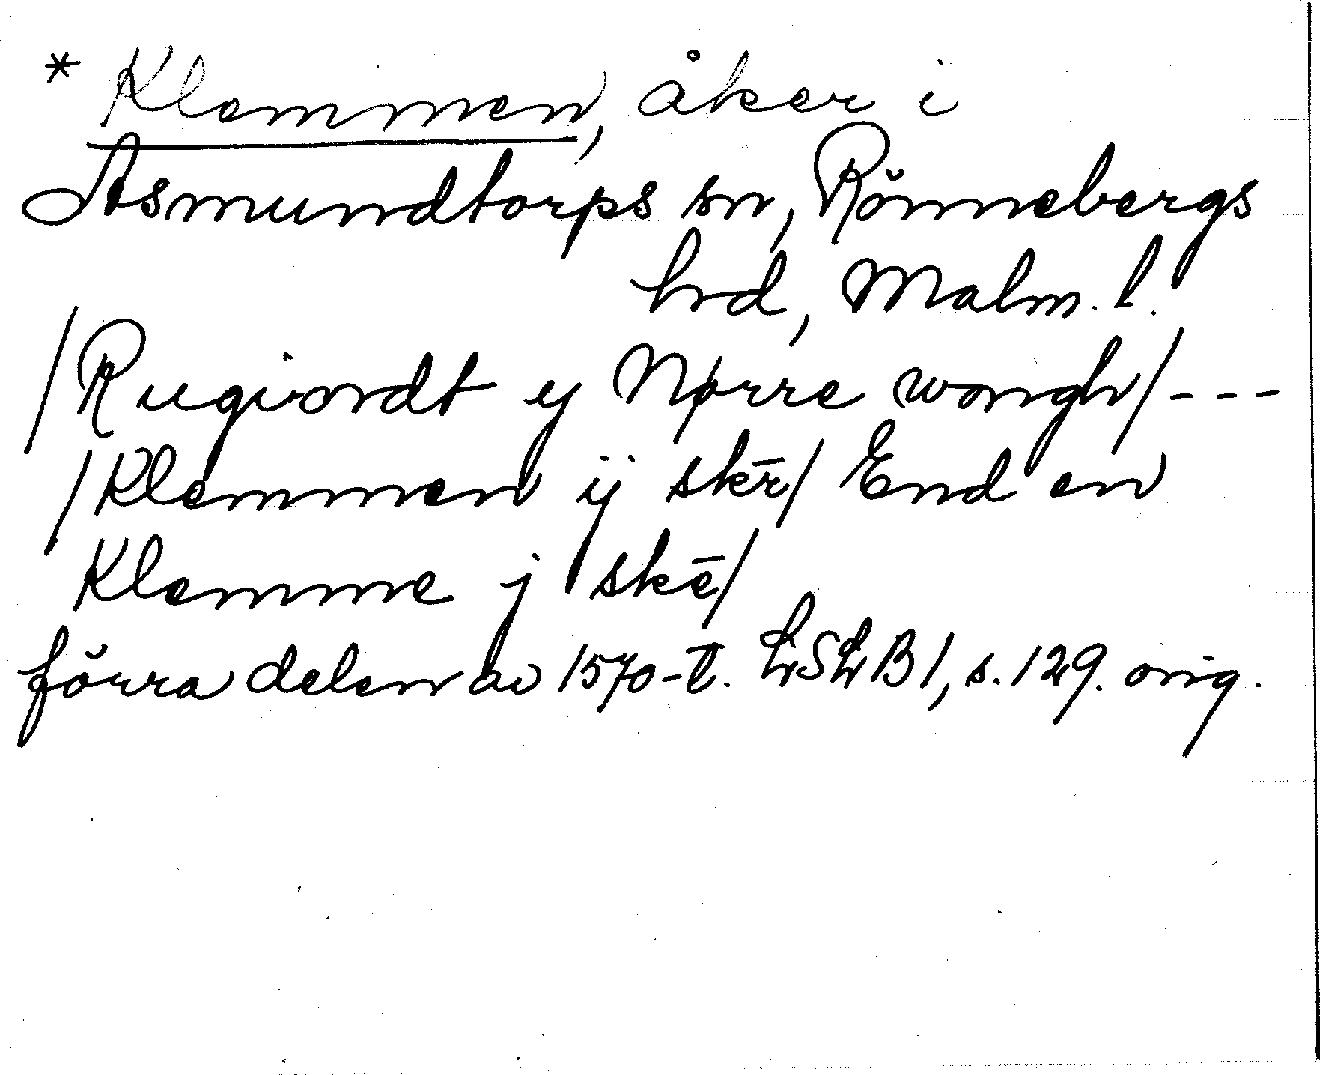 * Klemmen, åker i
Asmundtorps sn, Rönnebergs
hrd, Malm. l.
/Rugiordt ij Nørre wongh/ ---
/Klemmen ij skē/ End en
Klemme j skē/
förra delen av 1570-t. LSLB1, s. 129. orig.